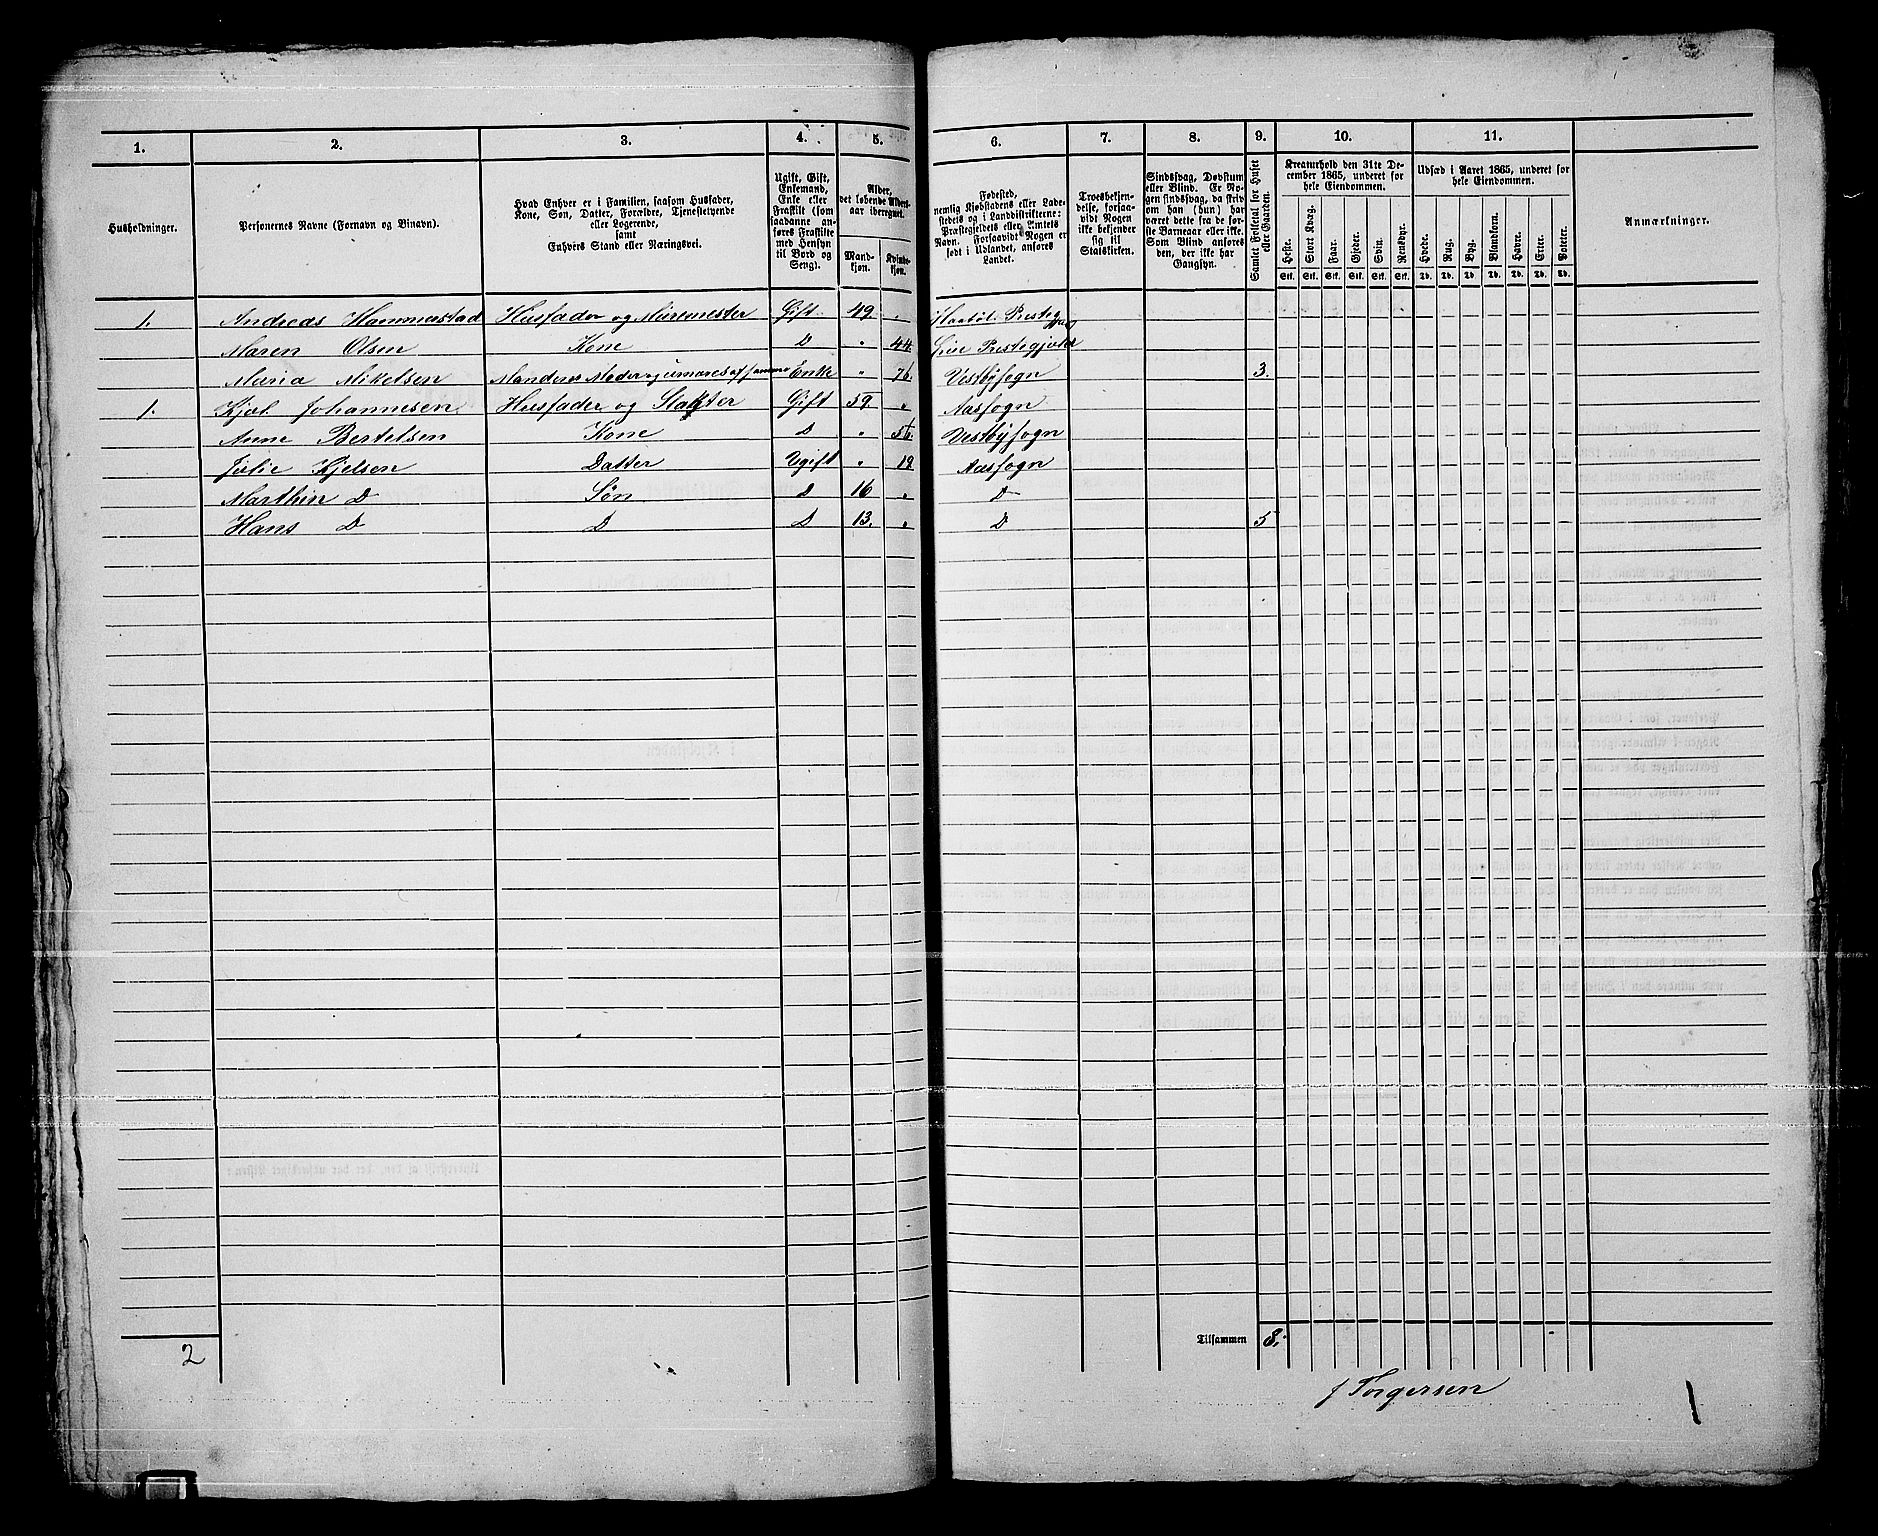 1. 2. 3. 4. 5. 6. 7. 8. 9. 10. 11.
Husholdninger.
Personernes Navne (Fornavn og Binavn).
Hvad Enhver er i Familien, saasom Husfader,
Kone, Søn, Datter, Forældre, Tjenestetyende
eller Logerende,
samt
Enhvers Stand eller Næringsvei.
Ugift, Gift,
Enkemand,
Enke eller
Fraskilt (som
saadanne an-
føres Fraskilte
med Hensyn
til Bord og
Seng).
Alder,
det løbende Alders-
aar iberegnet.
Mand-
kjøn.
Kvinde-
kjøn.
Fødested,
nemlig Kjøbstadens eller Lade-
stedets og i Landdistrikterne:
Præstegjeldets eller Amtets
Navn. Forsaavidt Nogen er
født i Udlandet, anføres
Landet.
Troesbekjen-
delse, forsaa-
vidt Nogen
ikke bekjender
sig til
Statskirken.
Sindssvag, Døvstum
eller Blind. Er No-
gen sindssvag, da skriv
om han (hun) har
været dette fra de før-
ste Barneaar eller ikke.
Som Blind anføres
den, der ikke har
Gangsyn.
Samlet Folketal for Huset
eller Gaarden.
Kreaturhold den 31te De-
cember 1865, underet for
hele Eiendommen.
Heste. Stort Kvæg. Faar. Gjeder. Svin. Rensdyr.
Stk. Stk. Stk. Stk. Stk. Stk.
Udsæd i Aaret 1865, underet for
hele Eiendommen.
Hvede. Rug. Byg. Blandkorn. Havre. Erter. Poteter.
Td. Td. Td. Td. Td. Td. Td.
Anmærkninger.
1. Andreas Hammerstad Husfader og Muremester Gift. 49 Presteg
Maren Olsen Kone D " 44 Prestegjeld
Maria Mikelsen Mandens Moder Enke " 76 Vestbysogn 3.
1. Kjøl Johannesen Husfader og Slakter Gift 59. " Aassogn
Anne Bertelsen Kone D " 56. Vestbysogn
Julie Kjelsen Datter Ugift " 19 Aassogn
Marthin D Søn D 16 " D
Hans D D D 13. " D 5
Tilsammen 8.
2
Torgersen
1